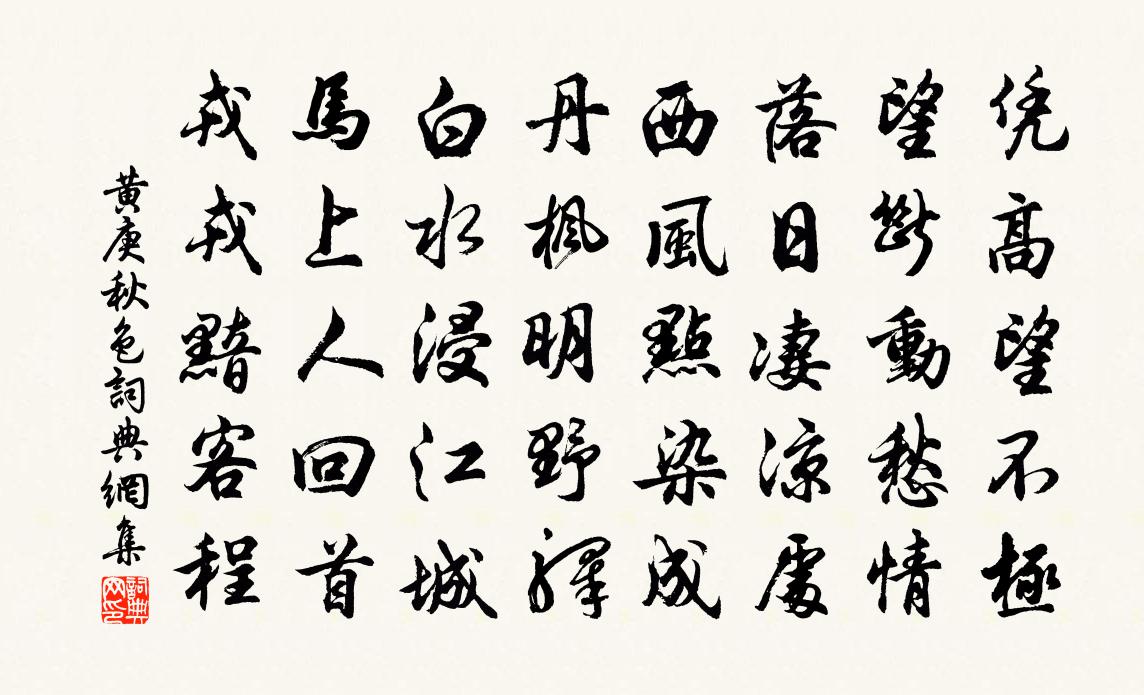 凭高望不極
望斷動愁情
落日凄涼處
西風點染成
丹楓明野驛
白水浸江城
馬上人回首
戎戎黯客程
黄庚秋色詞典網集
詞典网印